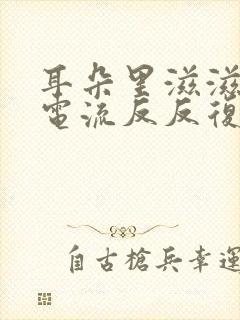 耳朵里滋滋
電流反反復
自古槍兵幸運